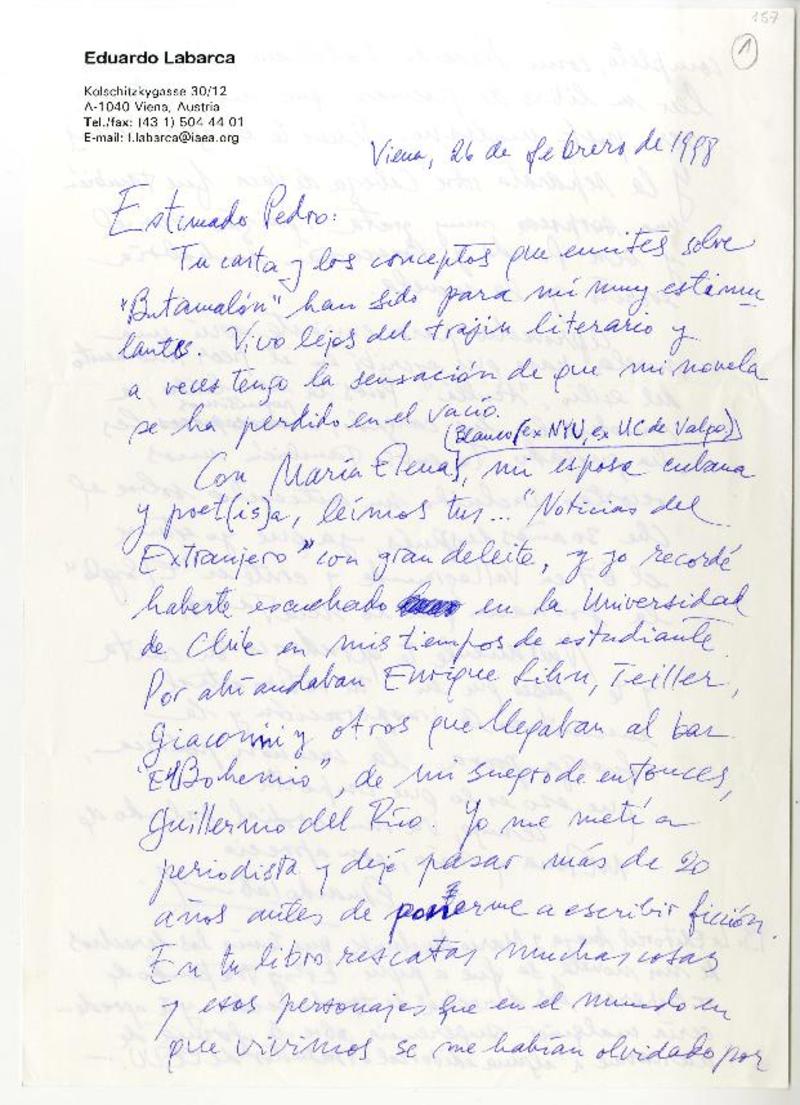 157
1
Eduardo Labarca
Kolschitzkygasse 30/12
A-1040 Viena, Austria
Tel./fax: (43 1) 504 44 01
E-mail: l.labarca@iaea.org
Viena, 26 de febrero de 1998
Estimado Pedro:
Tu carta y los conceptos que emites sobre
"Butamalón" han sido para mí muy estimu
lantes. Vivo lejos del trajín literario y
a veces tengo la sensación de que mi novela
se ha perdido en el vacío.
(Blanco (ex NYU, ex UC de Valpo))
Con María Elena, mi esposa cubana
y poet(is)a, leímos tus... "Noticias del
Extranjero" con gran deleite, y yo recordé
haberte escuchado en la Universidad
de Chile en mis tiempos de estudiante.
Por ahí andaban Enrique Lihn, Teiller,
Giaconi y otros que llegaban al bar
"El Bohemio", de mi suegro de entonces,
Guillermo del Río. Yo me metí a
periodista y dejé pasar más de 20
años antes de ponerme a escribir ficción.
En tu libro rescatas muchas cosas
y esos personajes que en el mundo en
que vivimos se me habían olvidado por